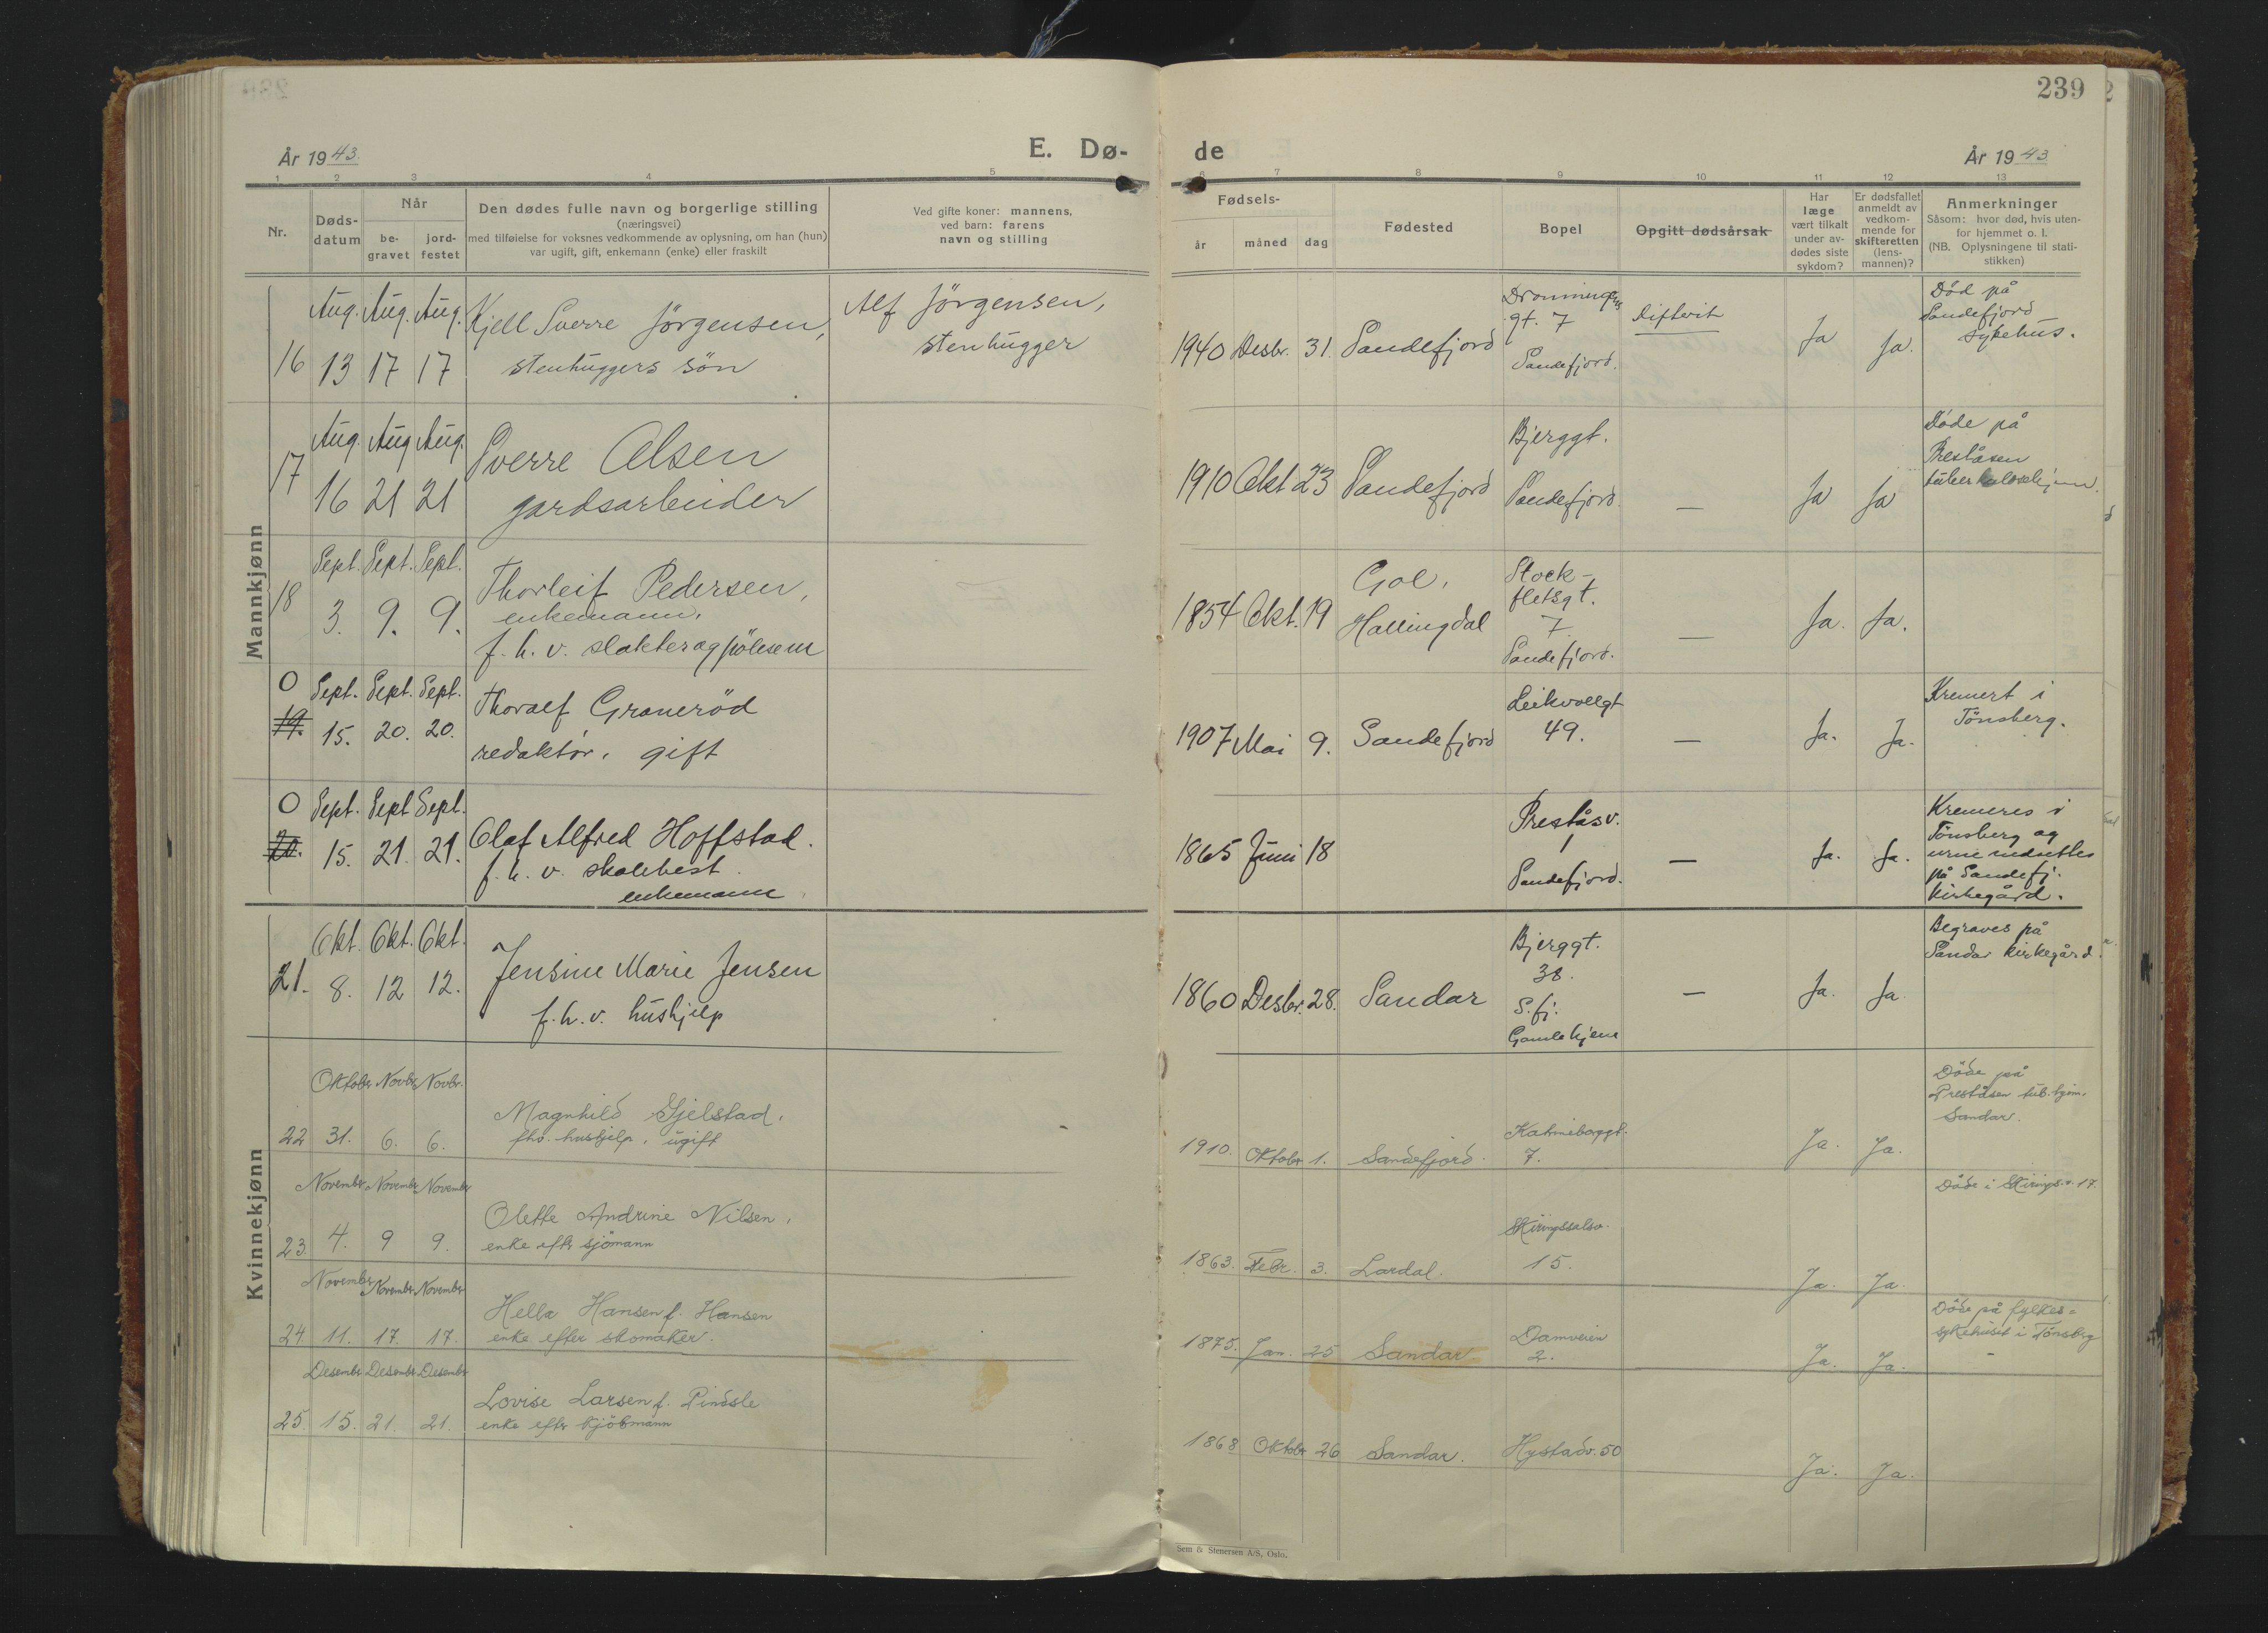 239
År 1943.
E. Dø-
de
År 1943
1 2 3 4 5
6 7 8 9 10 11 12 13
Nr.
Døds-
datum
Når
be-
gravet
jord-
festet
Den dødes fulle navn og borgerlige stilling
(næringsvei)
med tilføielse for voksnes vedkommende av oplysning, om han (hun)
var ugift, gift, enkemann (enke) eller fraskilt
Ved gifte koner: mannens,
ved barn: farens
navn og stilling
Fødsels-
år
måned
dag
Fødested
Bopel
Opgitt dødsårsak
Har
læge
vært tilkalt
under av-
dødes siste
sykdom?
Er dødsfallet
anmeldt av
vedkom-
mende for
skifteretten
(lens-
mannen)?
Anmerkninger
Såsom: hvor død, hvis uten-
for hjemmet o. l.
(NB. Oplysningene til stati-
stikken)
Mannkjønn
16
Aug. Aug. Aug.
13 17 17
Kjell Sverre Jörgensen,
stenhuggers sön
Alf Jörgensen,
stenhugger
1940 Desbr. 31. Sandefjord
Dronningens
gt. 7
Sandefjord.
difterit
Ja Ja.
Död på
Sandefjord
sykehus.
17
Aug. Aug. Aug.
16 21 21
Sverre Olsen
gardsarbeider
1910 Okt 23 Sandefjord
Bjerggt.
Sandefjord.
—
Ja Ja
Døde på
Preståsen
tuberkulosehjem.
18
Sept. Sept. Sept.
3. 9. 9.
Thorleif Pedersen,
enkemann,
f.h.v. slakter og pölsem
1854 Okt. 19
Gol,
Hallingdal
Stock-
fletsgt.
7
Sandefjord.
—
Ja. Ja.
0
19.
Sept. Sept. Sept.
15. 20. 20.
Thoralf Granerød
redaktör, gift
1907 Mai 9. Sandefjord
Leikvollgt
49.
—
Ja. Ja.
Kremert i
Tönsberg.
0
20.
Sept. Sept Sept.
15. 21. 21.
Olaf Alfred Hoffstad.
f.h.v. skolebest.
enkemann.
1865 Juni 18
Preståsv.
1
Sandefjord.
—
Ja. Ja.
Kremeres i
Tönsberg og
urne nedsettes
på Sandefj.
kirkegård.
Kvinnekjønn
21.
Okt. Okt. Okt.
8. 12 12.
Jensine Marie Jensen
f.h.v. hushjelp
1860 Desbr. 28. Sandar
Bjerggt.
38.
S.fj.
Gamlehjem
—
Ja. Ja.
Begraves på
Sandar kirkegård.
Oktober Novbr. Novbr.
22 31. 6. 6.
Magnhild Gjelstad,
fhv. hushjelp, ugift
1910. Oktober 1. Sandefjord.
7.
Ja. Ja.
Döde på
Preståsen tub.hjem,
Sandar.
November November November
23. 4. 9 9.
Olette Andrine Nilsen,
enke eftr sjömann
1863. Febr. 3. Lardal.
Skiringssalsv.
15.
Ja. Ja.
Döde i Skirings.v. 17.
November November November
24 11. 17. 17.
Hella Hansen f. Hansen
enke efter skomaker.
1875. Jan. 25 Sandar.
Damveien
2.
Ja. Ja.
Döde på fylkes=
sykehuset i Tönsberg
Desember Desember Desember
25. 15. 21. 21.
Lovise Larsen f. Pindsle
enke eftr kjöbmann
1868 Oktober 26 Sandar. Hystadv. 50
Ja. Ja.
Sem & Stenersen A/S, Oslo.